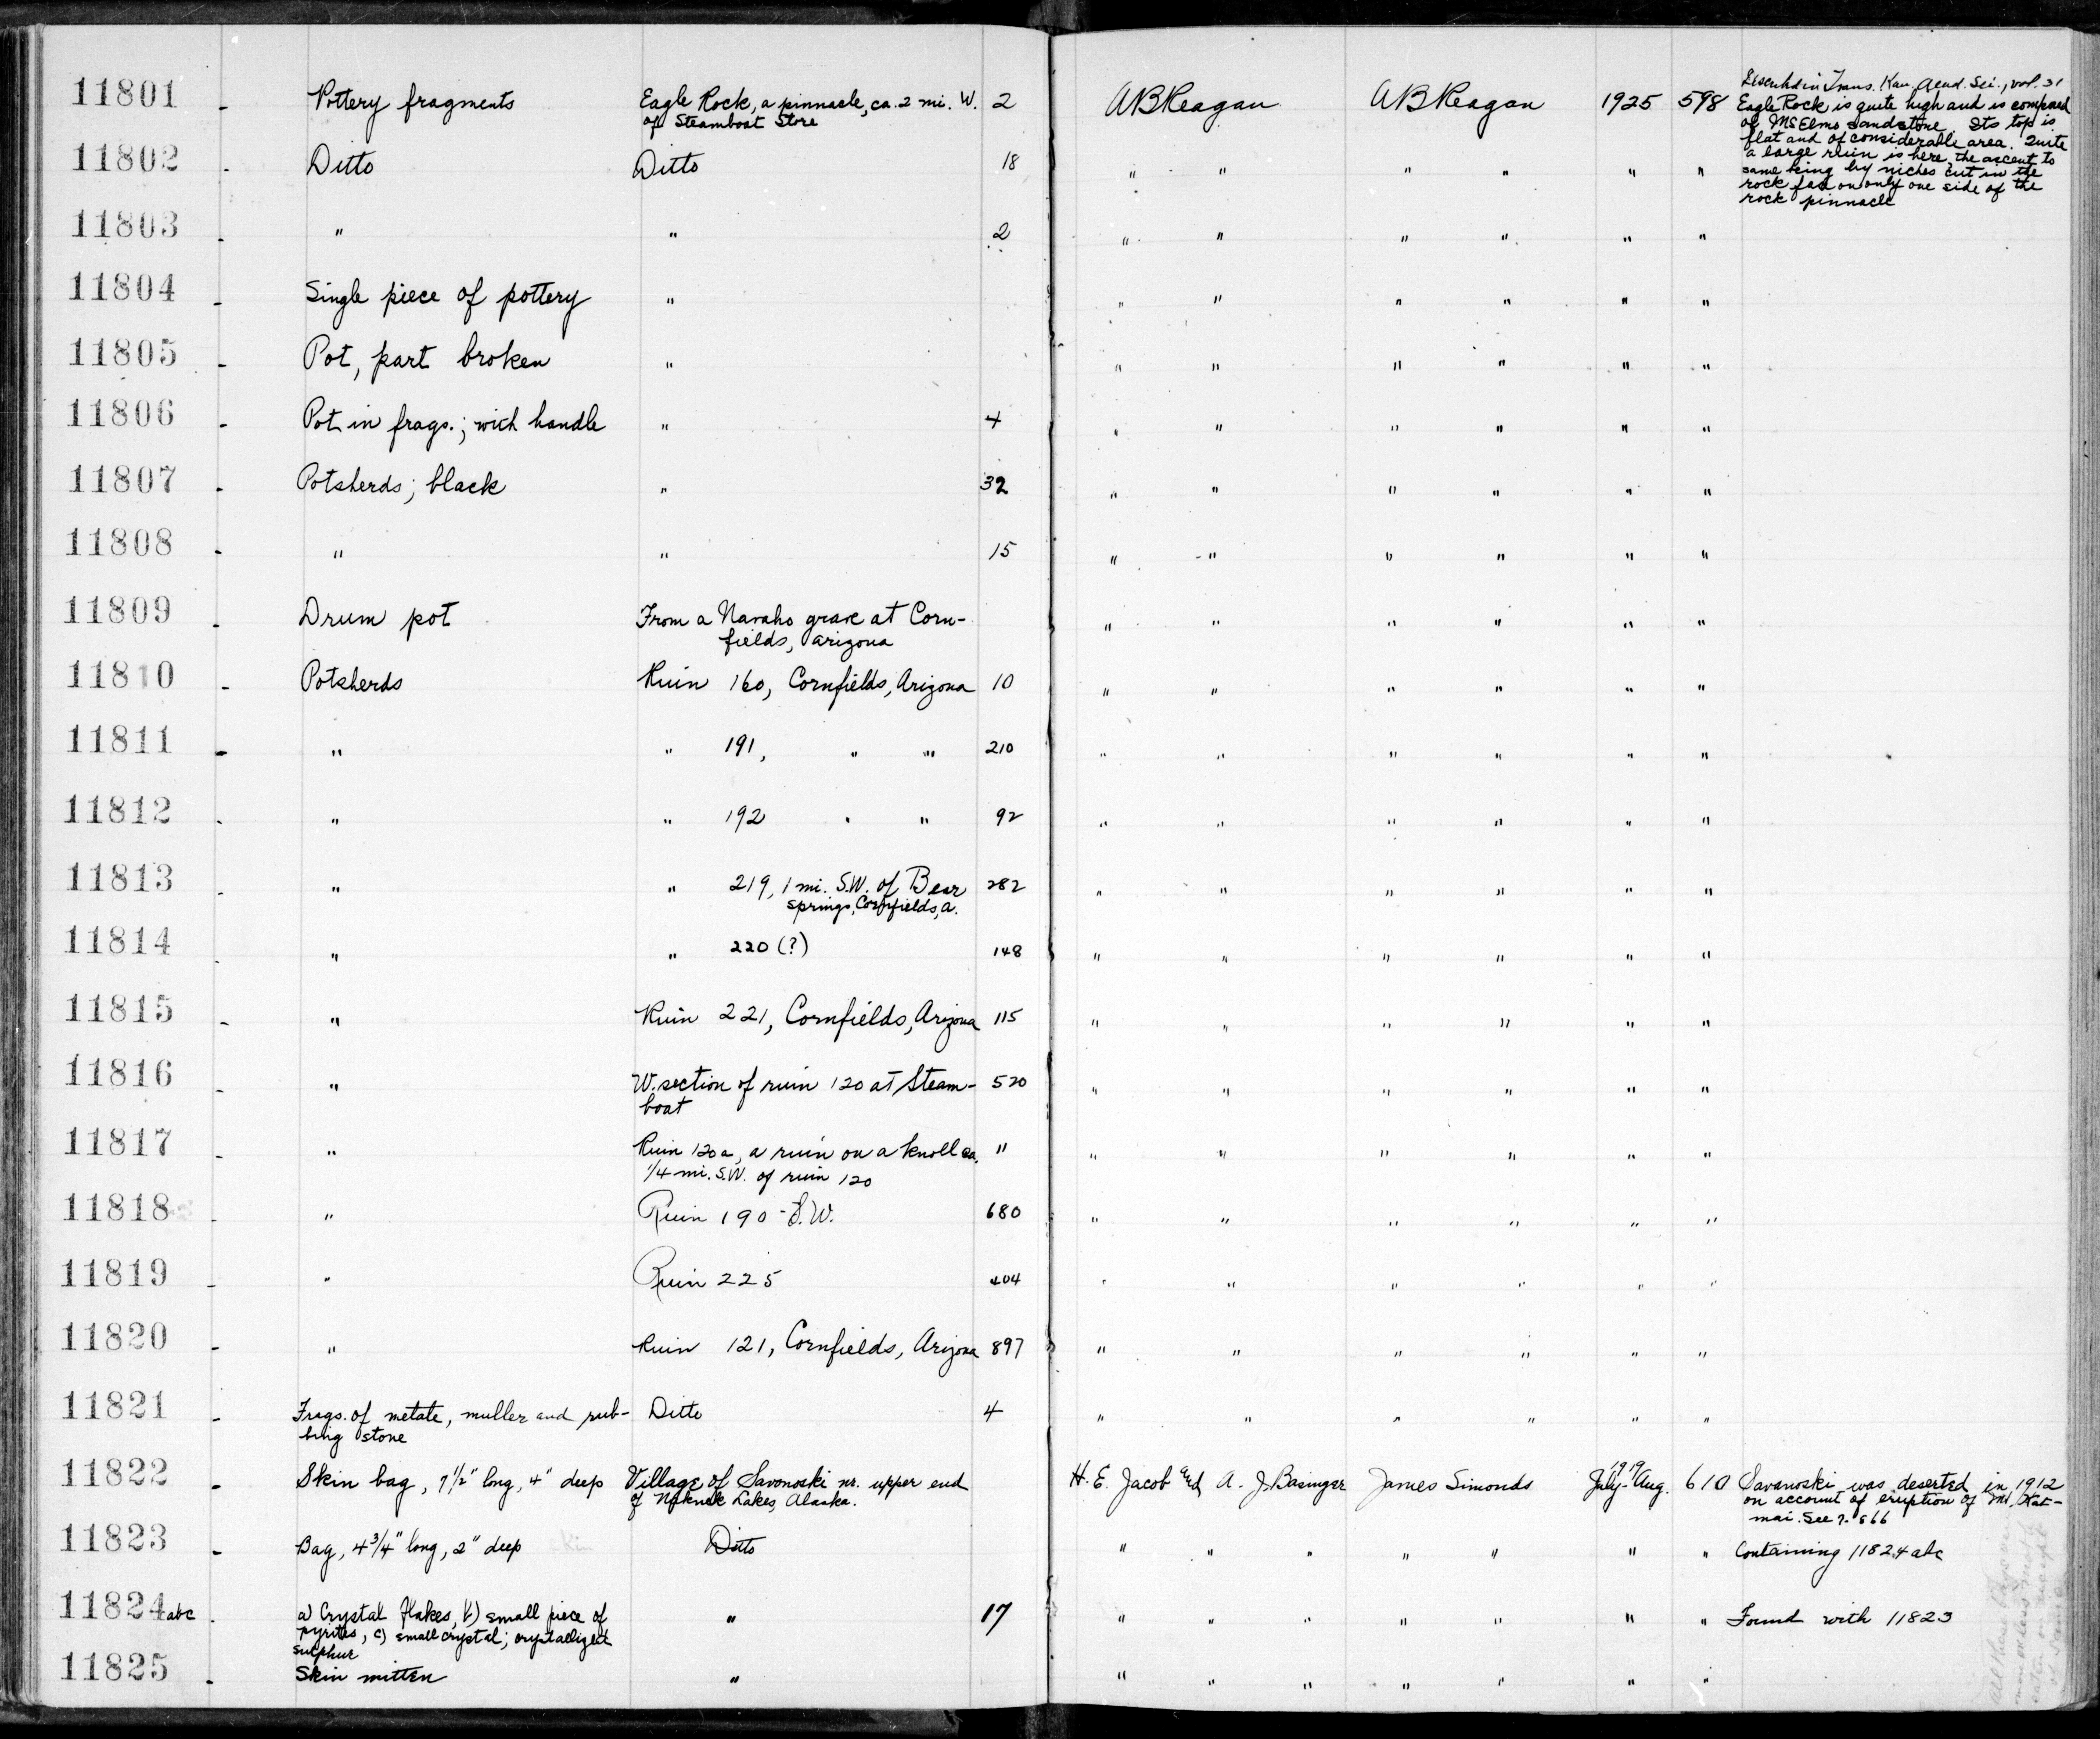 11801 - Pottery fragments Eagle Rock, a pinnacle, ca. 2 mi. W. 2 ABReagan ABReagan 1925 598
of Steamboat Store
Trans. Kan. Acad. Sci., vol. 31
Eagle Rock is quite high and is composed
of McElmo sandstone. Its top is
flat and of considerable area. Quite
a large ruin is here, the ascent to
same being by niches cut in the
rock on only one side of the
rock pinnacle
11802 - Ditto Ditto 18 " " " " " "
11803 - " " 2 " " " " " "
11804 - Single piece of pottery " " " " " " "
11805 - Pot, part broken " " " " " " "
11806 - Pot in frags.; with handle " 4 " " " " " "
11807 - Potsherds; black " 32 " " " " " "
11808 - " " 15 " " " " " "
11809 - Drum pot From a Navaho grave at Corn- " " " " " "
fields, Arizona
11810 - Potsherds Ruin 160, Cornfields, Arizona 10 " " " " " "
11811 - " " 191, " " 210 " " " " " "
11812 - " " 192 " " 92 " " " " " "
11813 - " " 219, 1 mi. S.W. of Bear 282 " " " " " "
springs, Cornfields, A.
11814 - " " 220 (?) 148 " " " " " "
11815 - " Ruin 221, Cornfields, Arizona 115 " " " " " "
11816 - " W. section of ruin 120 at Steam- 520 " " " " " "
boat
11817 - " Ruin 120a, a ruin on a knoll ca. " " " " " " "
1/4 mi. S.W. of ruin 120
11818 - " Ruin 190 - S.W. 680 " " " " " "
11819 - " Ruin 225 404 " " " " " "
11820 - " Ruin 121, Cornfields, Arizona 897 " " " " " "
11821 - Frags. of metate, muller and rub- Ditto 4 " " " " " "
bing stone
11822 - Skin bag, 7 1/2" long, 4" deep Village of Savonoski nr. upper end H. E. Jacob and A. J Basinger James Simonds 1919 July-Aug. 610 Savanoski was deserted in 1912
of Naknek Lakes, Alaska. on account of eruption of Mt. Kat-
mai. See
11823 - Bag, 4 3/4" long, 2" deep skin Ditto " " " " " " " Containing 11824abc
11824abc - a) Crystal flakes, b) small piece of " 17 " " " " " " " Found with 11823
pyrites, c) small crystal; crystallized
sulphur
11825 - Skin mitten " " " " " " " "